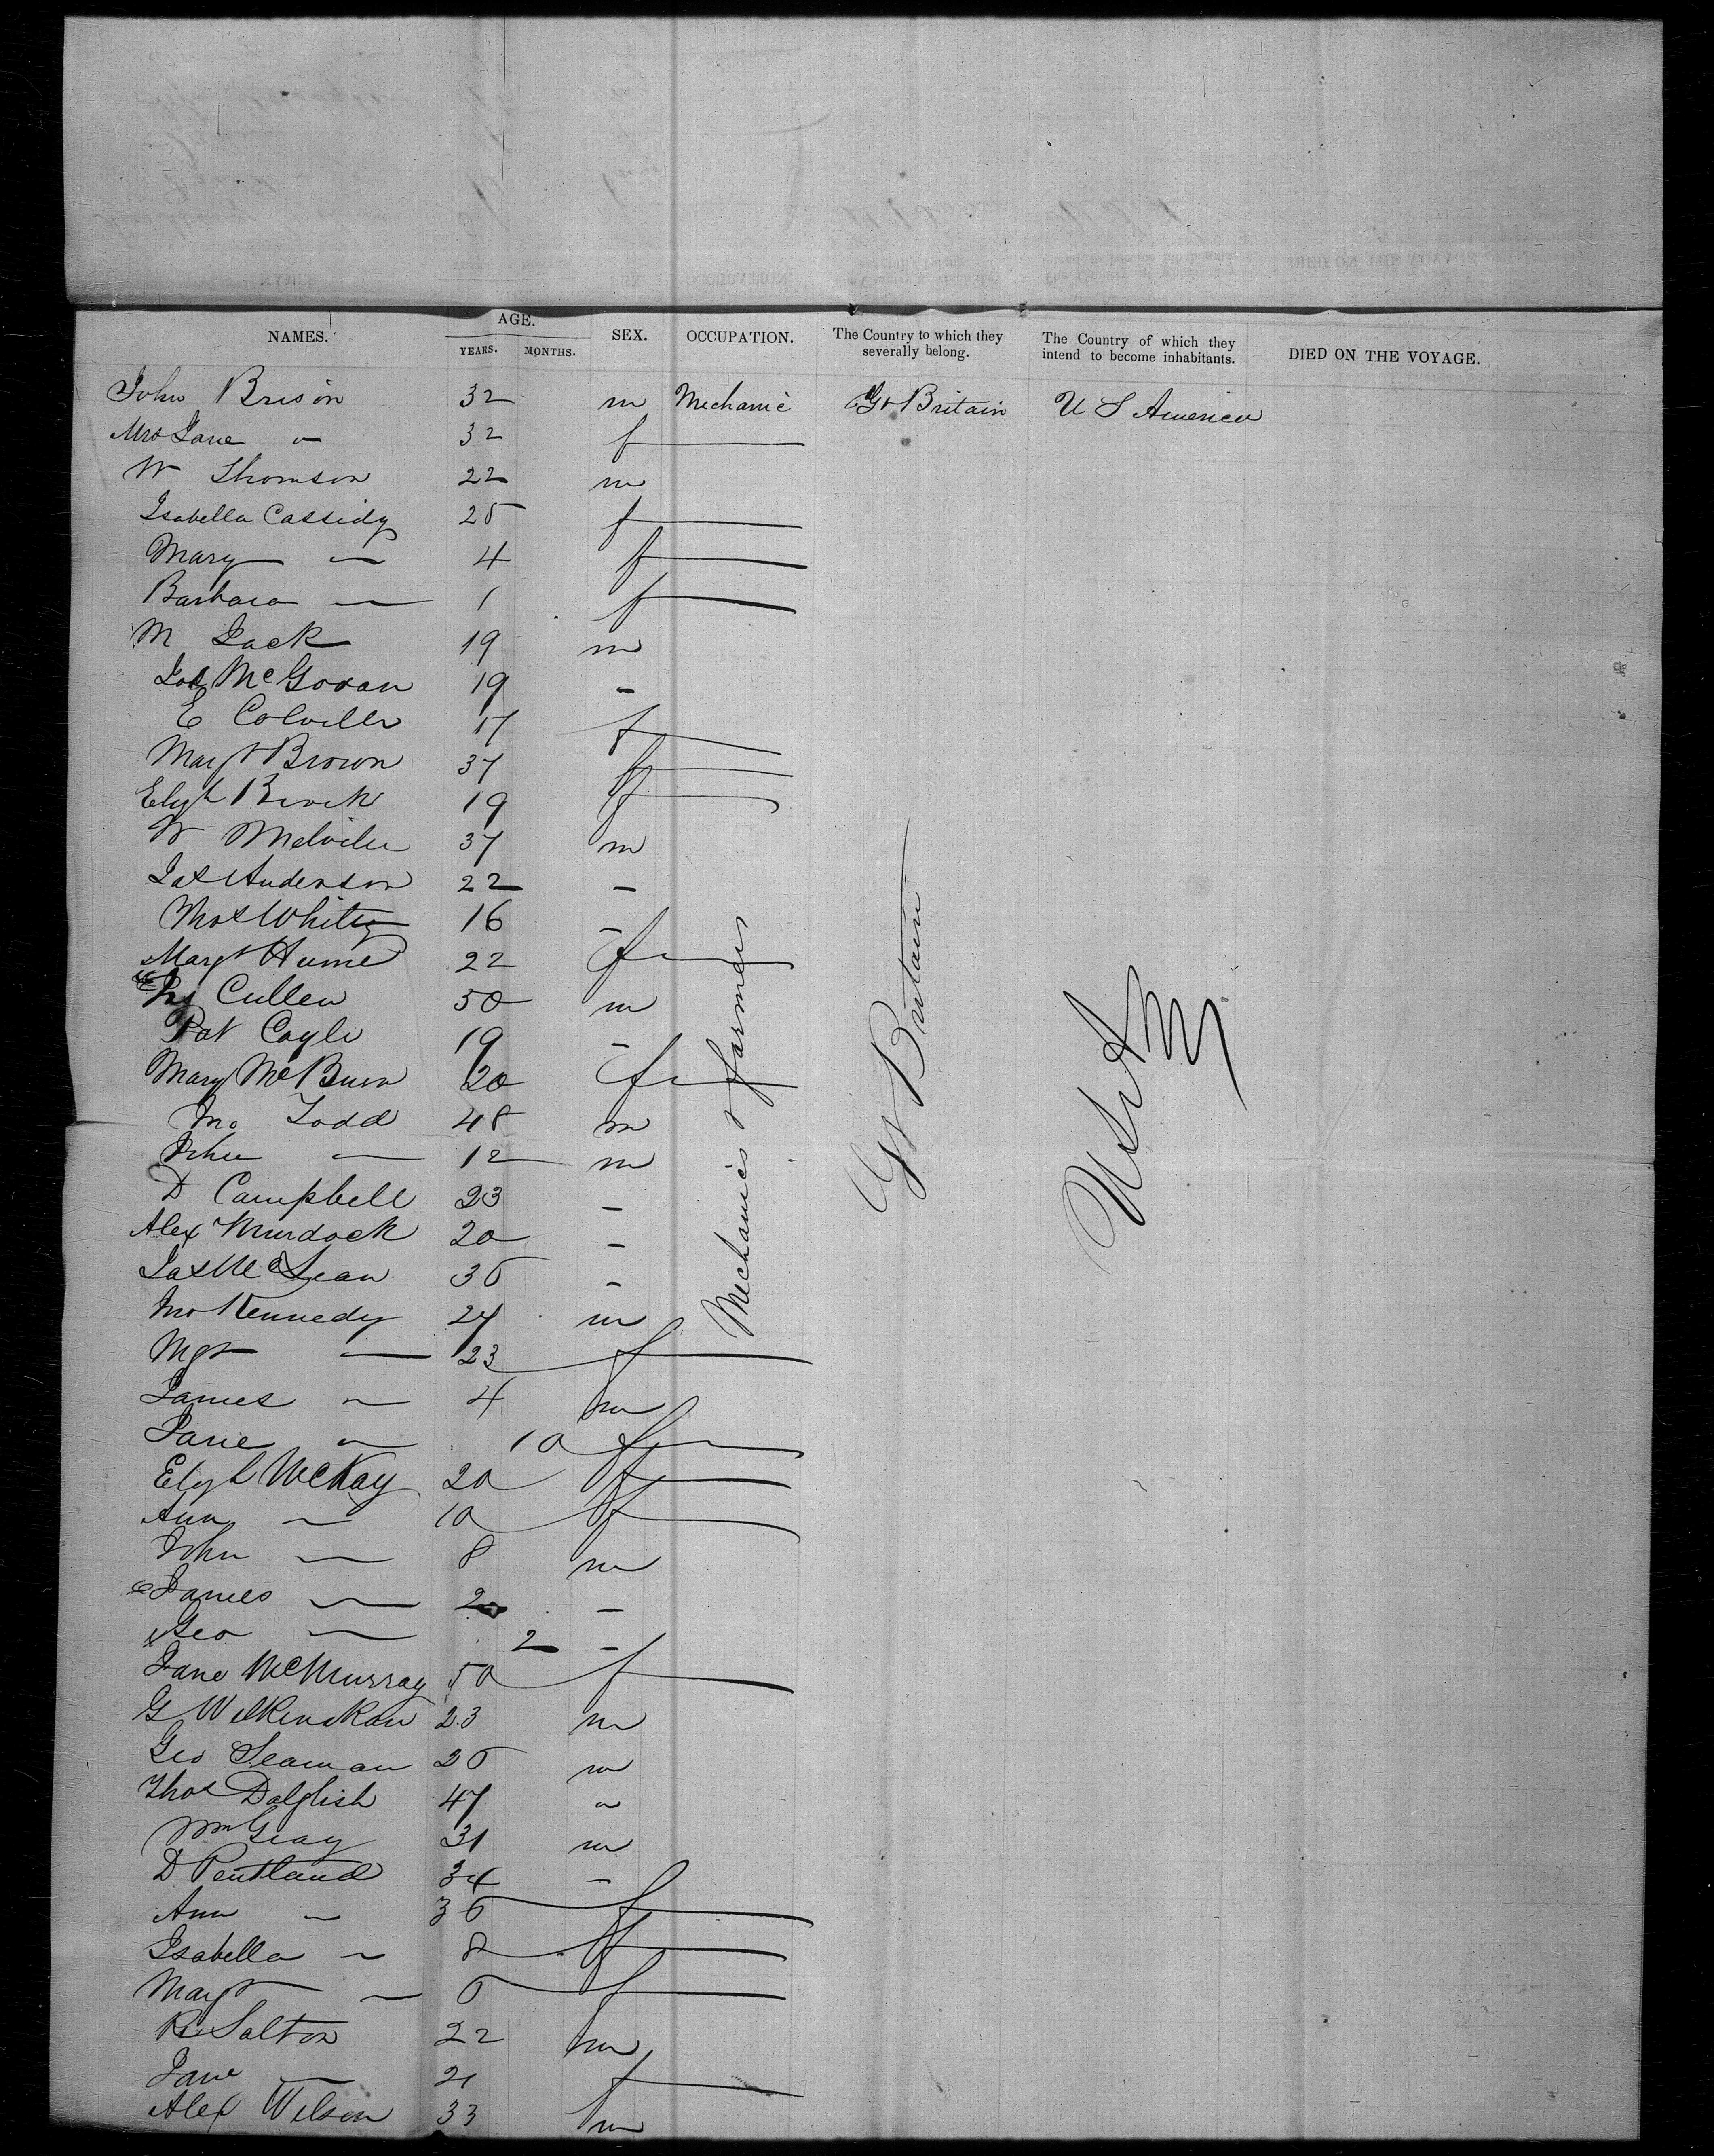 NAMES. AGE. YEARS. MONTHS. SEX. OCCUPATION. The Country to which they severally belong. The Country of which they intend to become inhabitants. DIED ON THE VOYAGE.
John Brison 32 m Mechanic Gt Britain U S America
Mrs Jane " 32 f
W Thomson 22 m
Isabella Cassidy 25 f
Mary — 4 f
Barbara — 1 f
M Jack 19 m
Jos McGowan 19 -
E Colville 17 f
Margt Brown 37 f
Elizth Brock 19 f
W Melville 37 m
Jas Anderson 22 -
Thos White 16 -
Margt Hume 22 f
Cullen 50 m
Pat Coyle 19 -
Mary McBurn 20 f
Jno Todd 48 m
John — 12 m
D Campbell 23 -
Alex Murdock 20 -
Jas McLean 35 -
Jno Kennedy 24 m
Mgt — 23 f
James — 4 m
Jane — 10 f
Elizth McKay 20 f
Ann — 10 f
John — 8 m
James — 2 -
Geo — 2 -
Jane McMurray 50 f
G Wilkinson 23 m
Geo Seaman 25 m
Thos Dalglish 47 "
Wm Gray 31 m
D Pentland 34 -
Ann — 35 f
Isabella — 8 f
Margt — 5 f
R Salton 22 m
Jane — 21 f
Alex Wilson 33 m
Mechanics & farmers
Gt Britain
U S Am